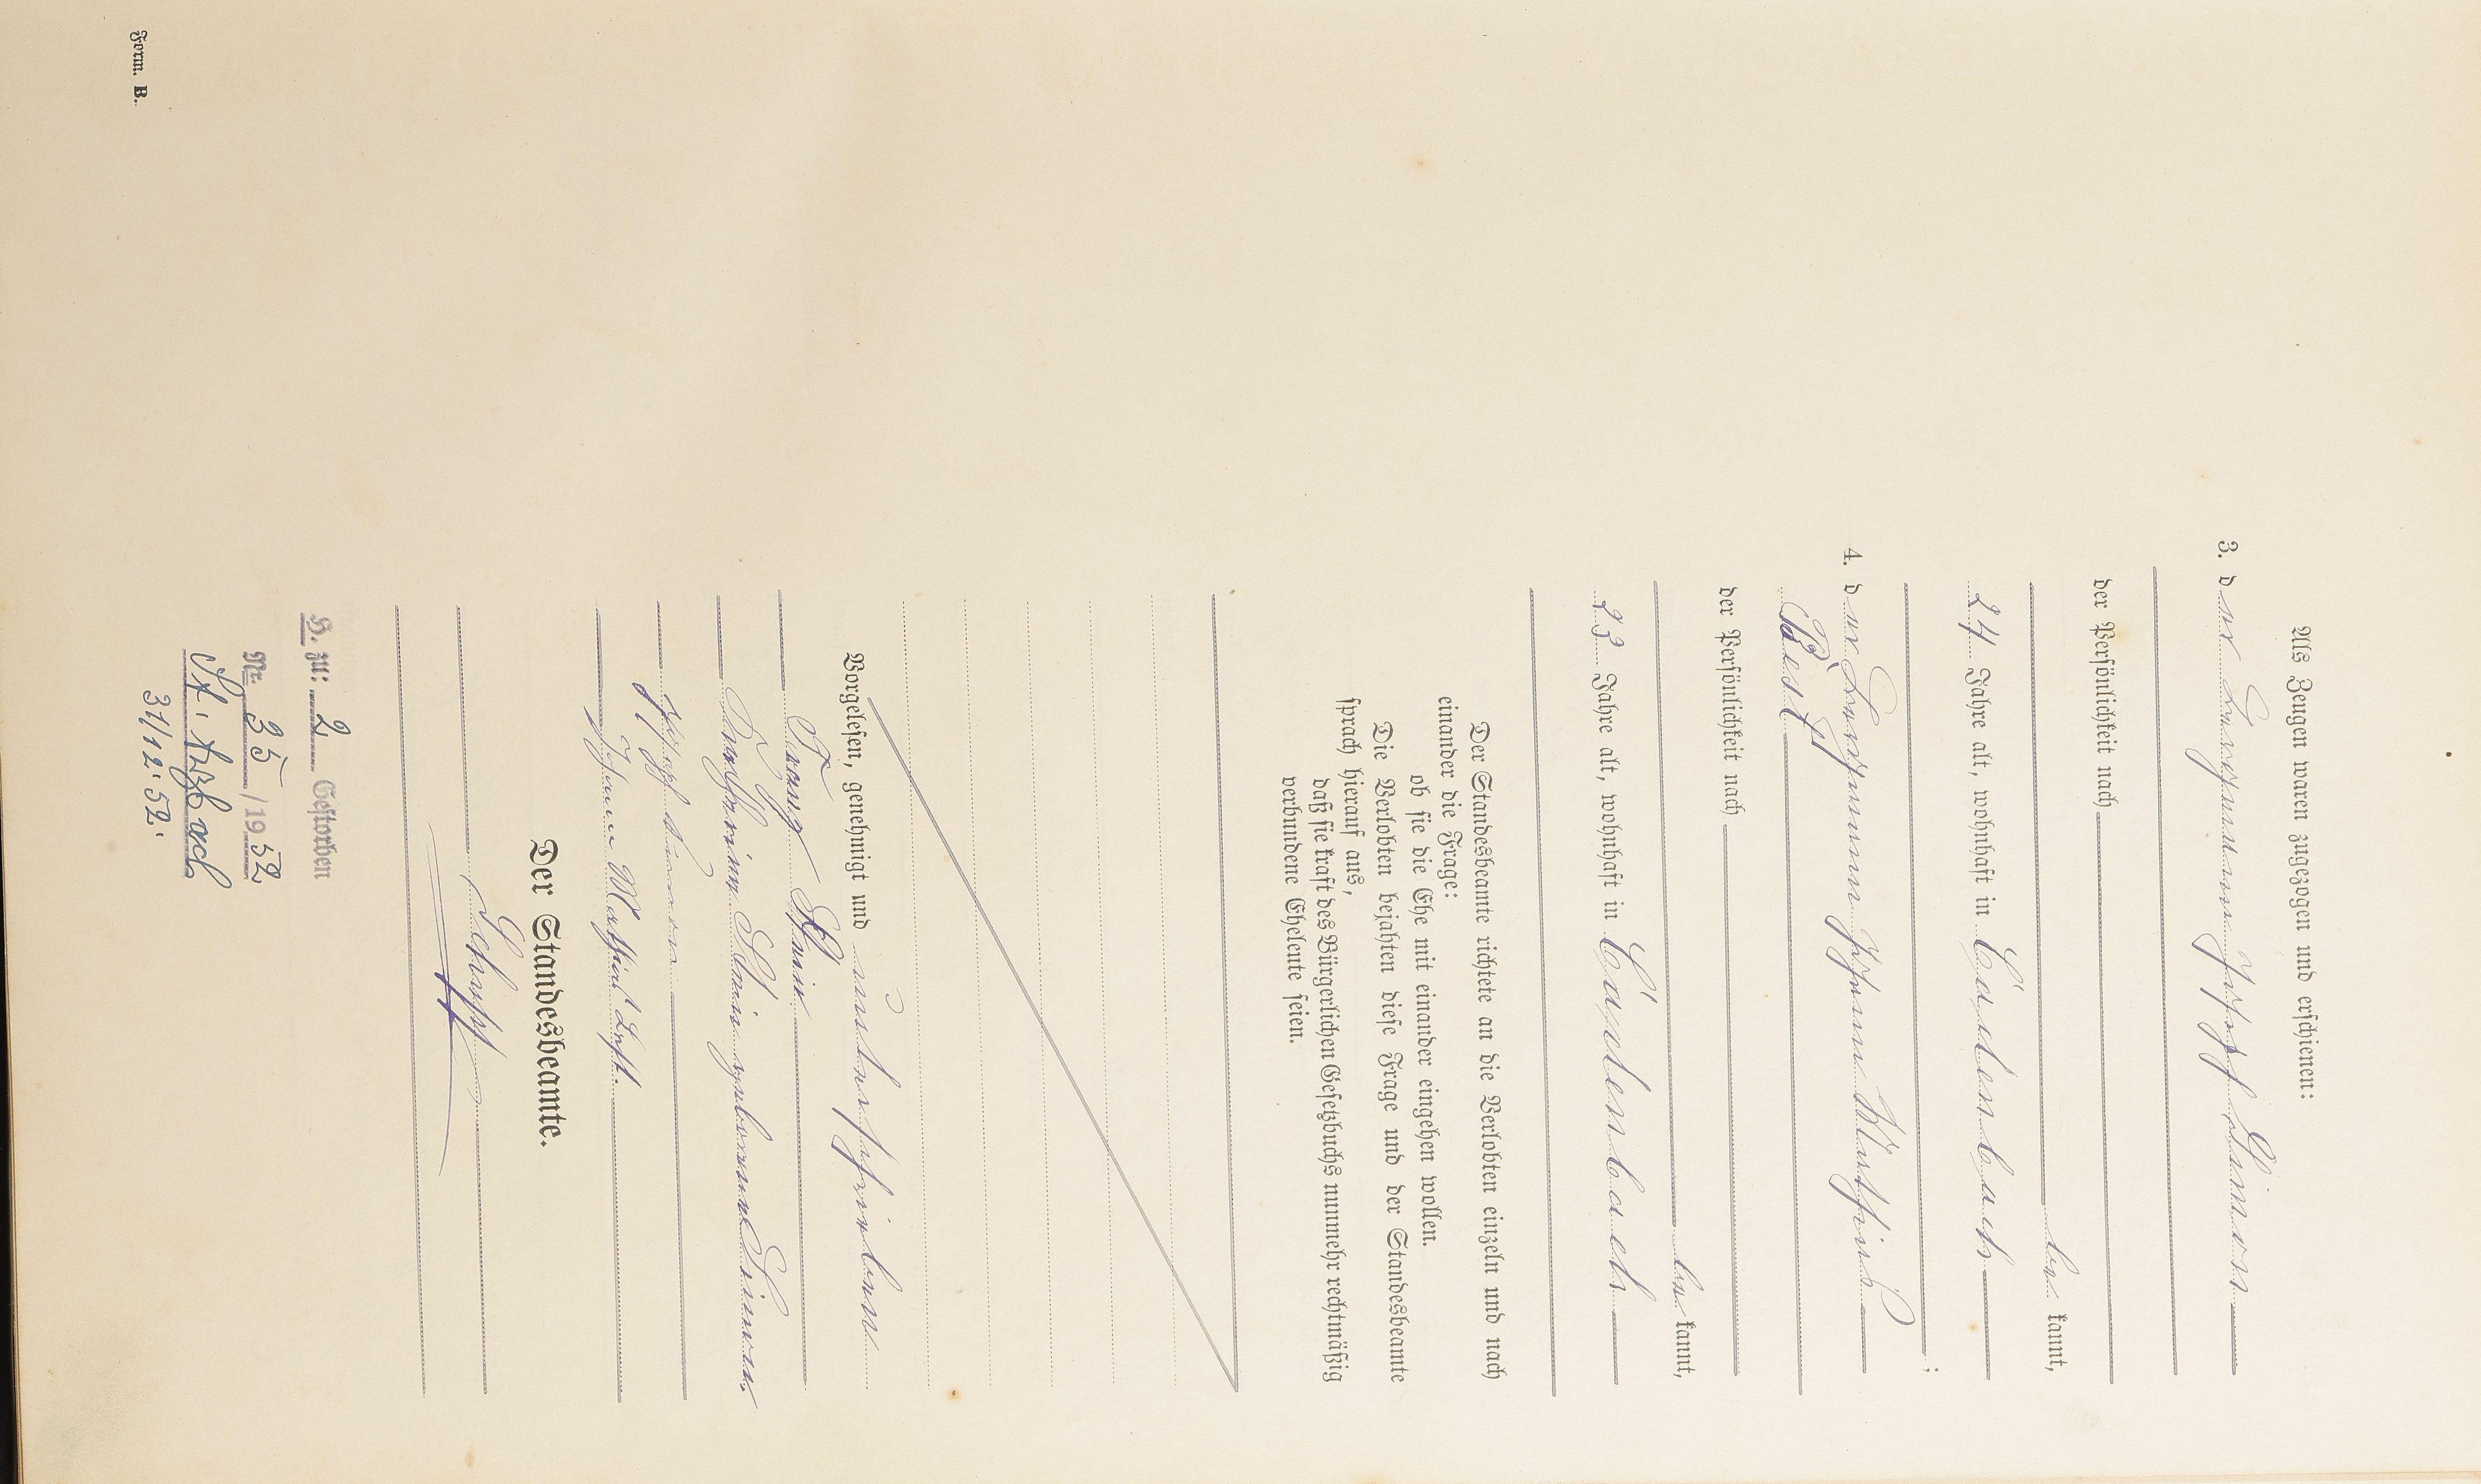 Als Zeugen waren zugezogen und erschienen:
3. der Bergmann Josef Simon
der Persönlichkeit nach
kannt,
24 Jahre alt, wohnhaft in Caulenbach
;
4. der Bergmann Johann Mathias
Best
der Persönlichkeit nach
kannt,
23 Jahre alt, wohnhaft in Caulenbach
Der Standesbeamte richtete an die Verlobten einzeln und nach
einander die Frage:
ob sie die Ehe mit einander eingehen wollen.
Die Verlobten bejahten diese Frage und der Standesbeamte
sprach hierauf aus,
daß sie kraft des Bürgerlichen Gesetzbuchs nunmehr rechtmäßig
verbundene Eheleute seien.
Vorgelesen, genehmigt und unterschrieben
Franz Klein
Katharina Klein geborene Simon.
Josef Simon
Johann Mathias Best.
Der Standesbeamte.
H. zu: 2 Gestorben
Nr. 35 / 19 52
St. A.
31/12.52.
Form. B.